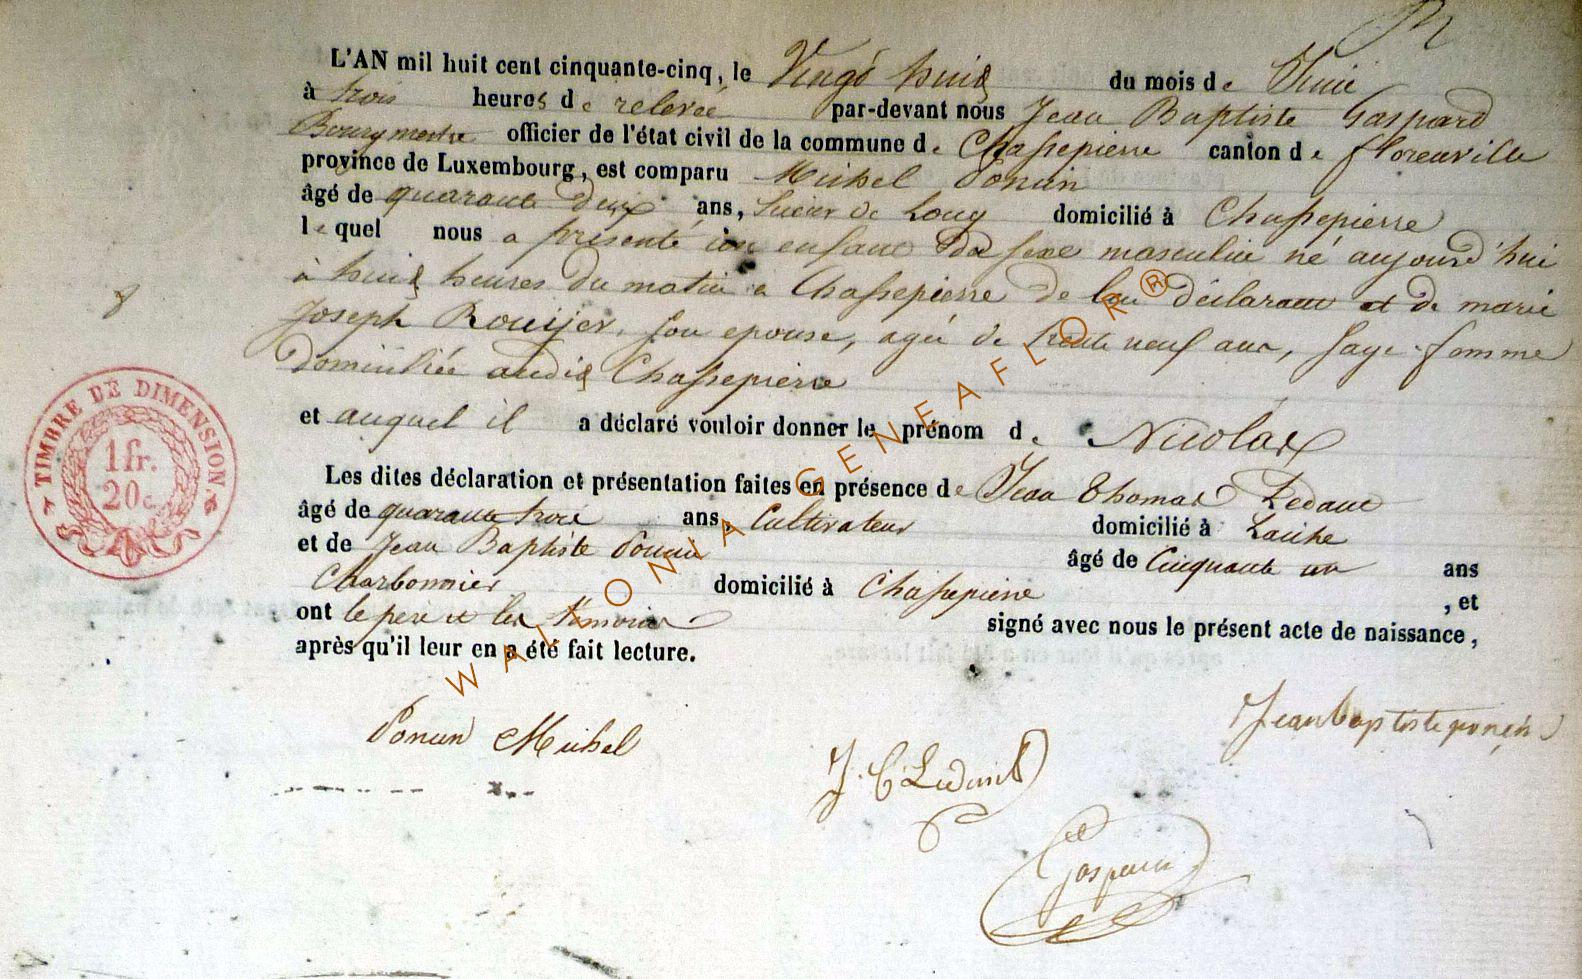 L'AN mil huit cent cinquante-cinq, le Vingt huit du mois de Juin
à trois heures de relevée par-devant nous Jean Baptiste Gaspard
Bourgmestre officier de l'état civil de la commune de Chassepierre canton de florenville
province de Luxembourg, est comparu Michel Poncin
âgé de quarante deux ans, Scieur de Long domicilié à Chassepierre
lequel nous a présenté un enfant du sexe masculin né aujourd'hui
à huit heures du matin a Chassepierre de lui déclarant et de marie
Joseph Rouyer, son epouse, agée de trente neuf ans, sage-femme
domiciliée audit Chassepierre
et auquel il a déclaré vouloir donner le prénom de Nicolas
Les dites déclaration et présentation faites en présence de Jean Thomas
âgé de quarante trois ans, Cultivateur domicilié à Laiche
et de Jean Baptiste Poncin âgé de Cinquante un ans
Charbonnier domicilié à Chassepierre , et
ont le pere et les temoins signé avec nous le présent acte de naissance,
après qu'il leur en a été fait lecture.
TIMBRE DE DIMENSION.
1 fr.
20 c.
WALLONIA GENEAFLOR®
Poncin Michel
Jean baptiste poncin
J. T.
Gaspard